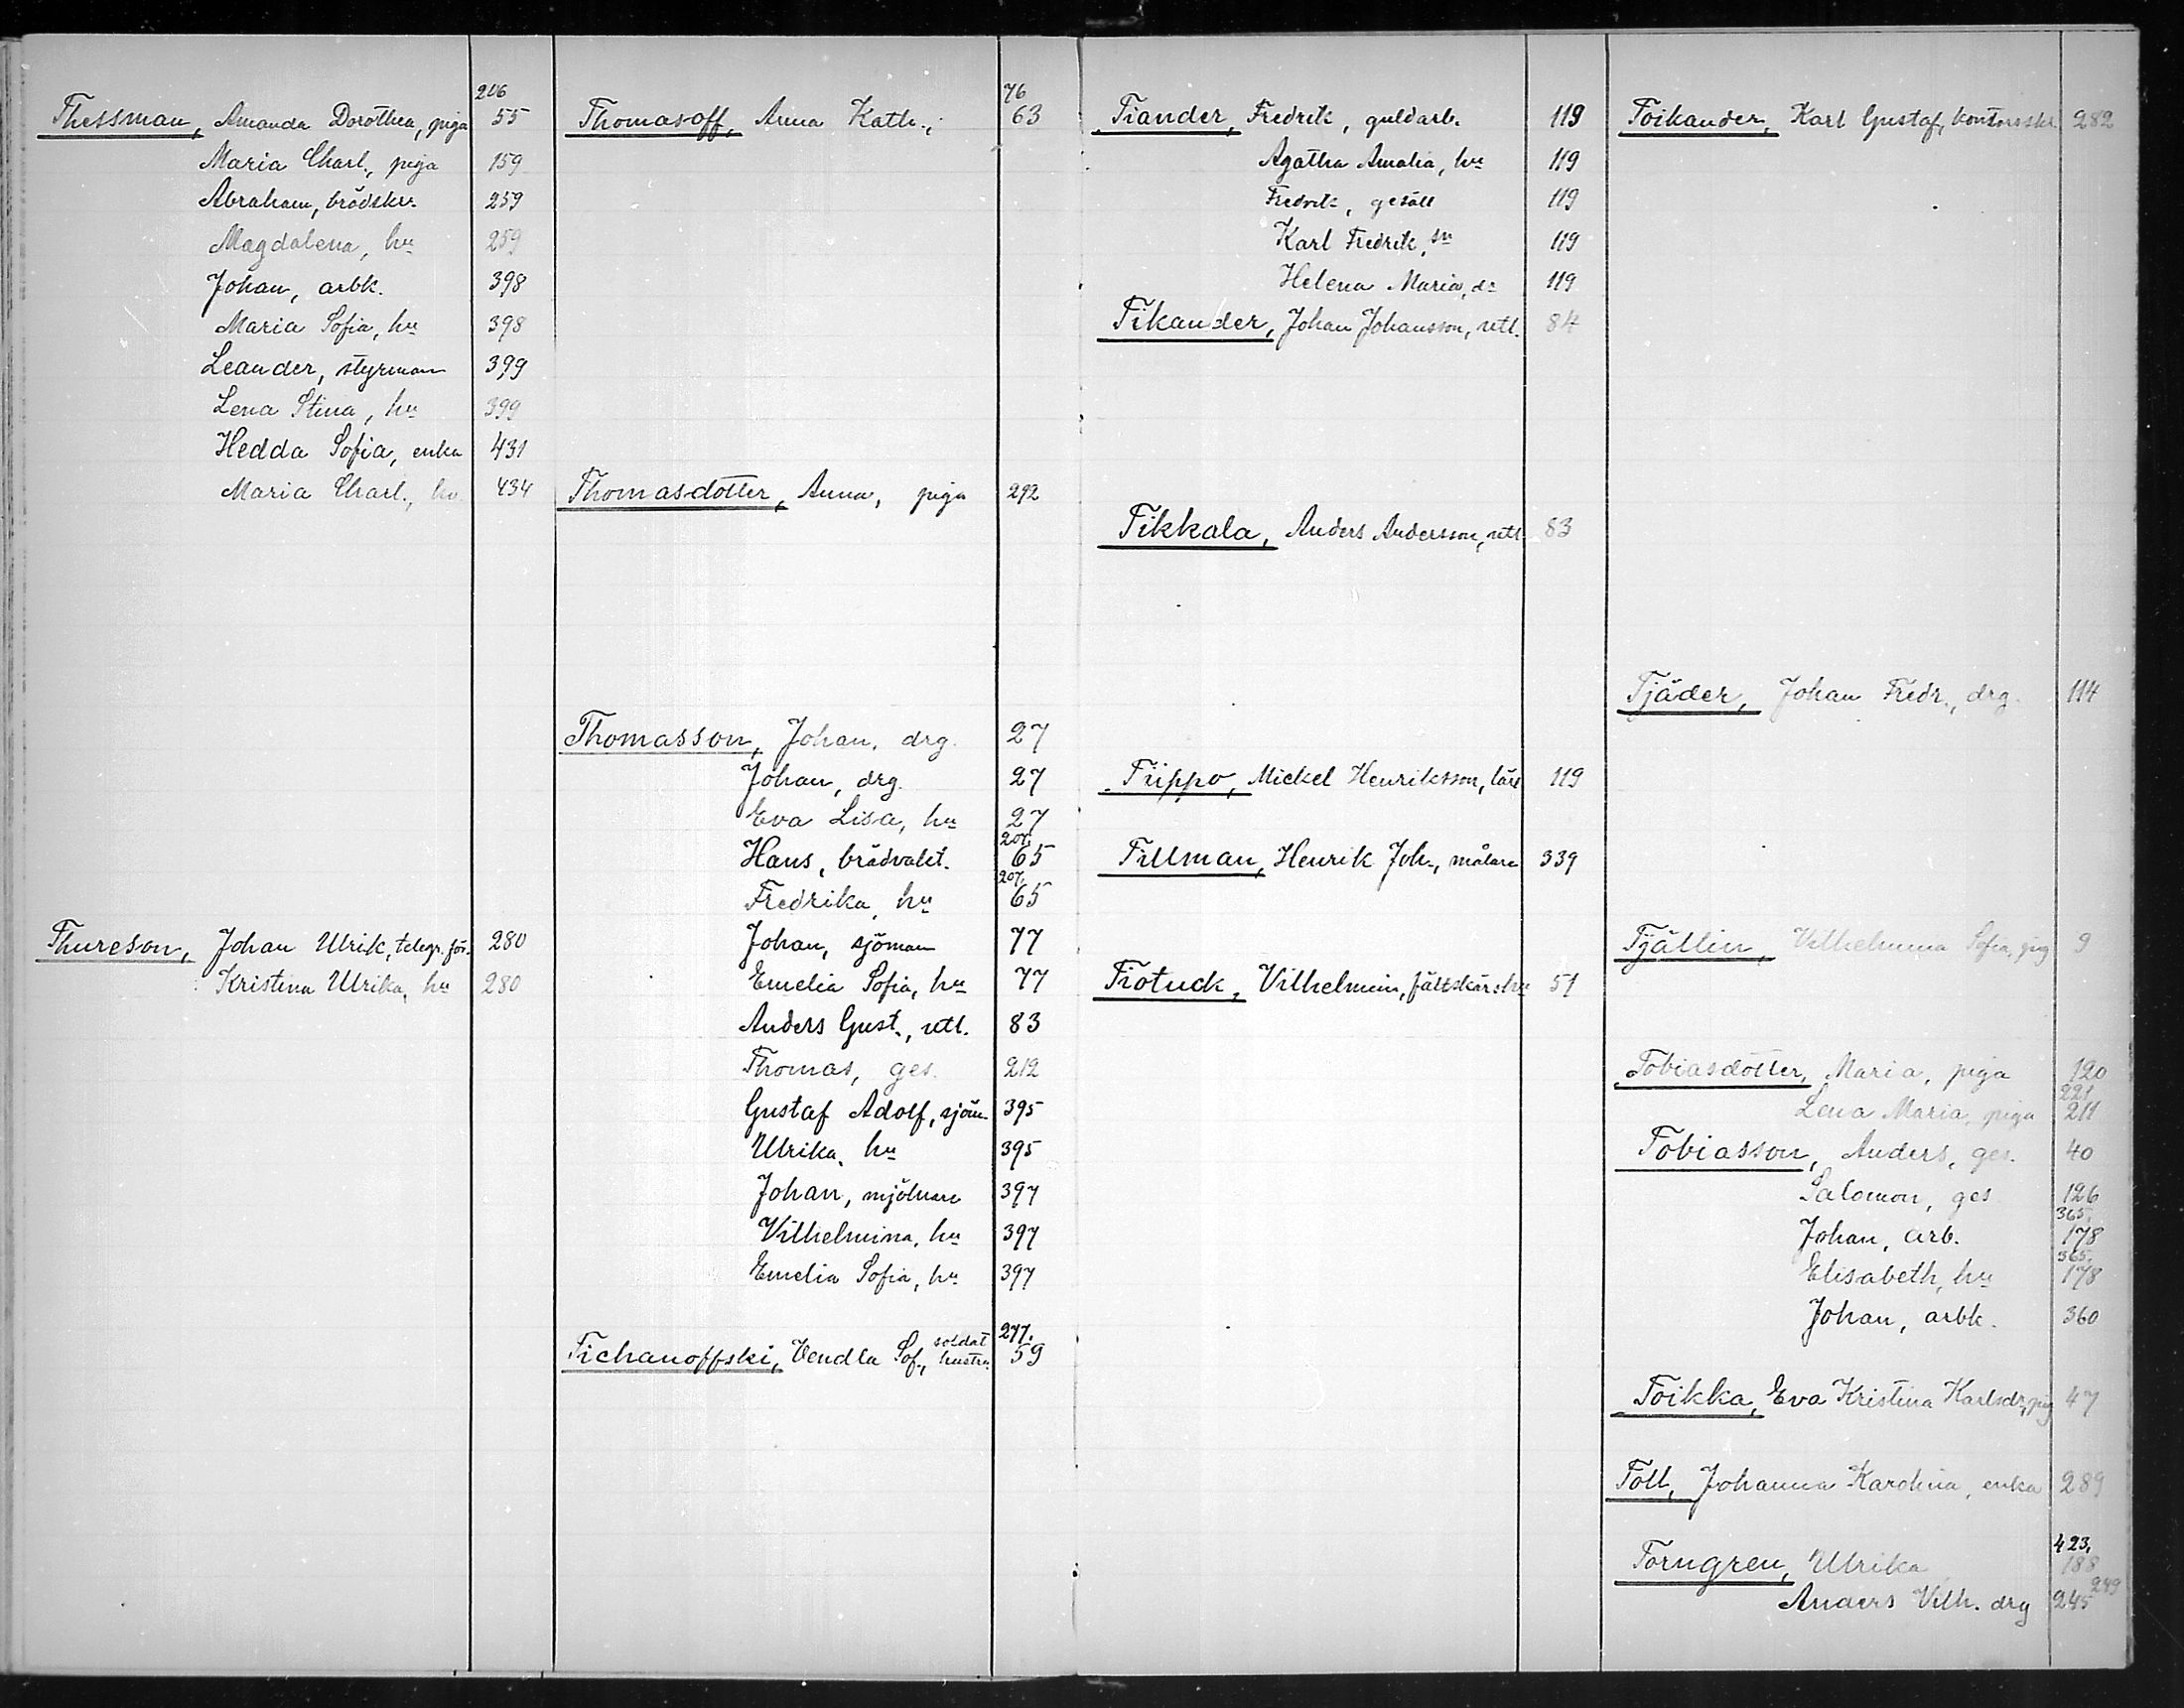 206
Thessman, Amanda Dorothea, piga 55
Maria Charl., piga 159
Abraham, brödskr. 259
Magdalena, hu 259
Johan, arbk. 398
Maria Sofia, hu 398
Leander, styrman 399
Lena Stina, hu 399
Hedda Sofia, enka 431
Maria Charl., hu 434
Thureson, Johan Ulrik, telegr. för. 280
Kristina Ulrika, hu 280
76
Thomasoff, Anna Kath., 63
Thomasdotter, Anna, piga 292
Thomasson, Johan, drg. 27
Johan, drg. 27
Eva Lisa, hu 27
207.
Hans, brädvakt. 65
207.
Fredrika, hu 65
Johan, sjöman 77
Emelia Sofia, hu 77
Anders Gust., utl. 83
Thomas, ges. 212
Gustaf Adolf, sjöm. 395
Ulrika, hu 395
Johan, mjölnare 397
Vilhelmina, hu 397
Emelia Sofia, hu 397
277.
Tichanoffski, Vendla Sof., soldat hustru 59
Tiander, Fredrik, guldarb. 119
Agatha Amalia, hu 119
Fredrik, gesäll 119
Karl Fredrik, sn 119
Helena Maria, dr 119
Tikander, Johan Johansson, utl. 84
Tikkala, Anders Andersson, utl. 83
Tiippo, Mickel Henriksson, lärl 119
Tillman, Henrik Joh., målare 339
Tiotuck, Vilhelmin, fältskärshu 51
Toikander, Karl Gustaf, kontorsskr. 282
Tjäder, Johan Fredr., drg. 114
Tjällin, Vilhelmina Sofia, pig 9
Tobiasdotter, Maria, piga 120
221
Lena Maria, piga 211
Tobiasson, Anders, ges. 40
Salomon, ges 126
365.
Johan, arb. 178
365.
Elisabeth, hu 178
Johan, arbk. 360
Toikka, Eva Kristina Karlsdr, pig 47
Toll, Johanna Karolina, enka 289
423,
Torngren, Ulrika 188
249
Anders Vilh. drg 245